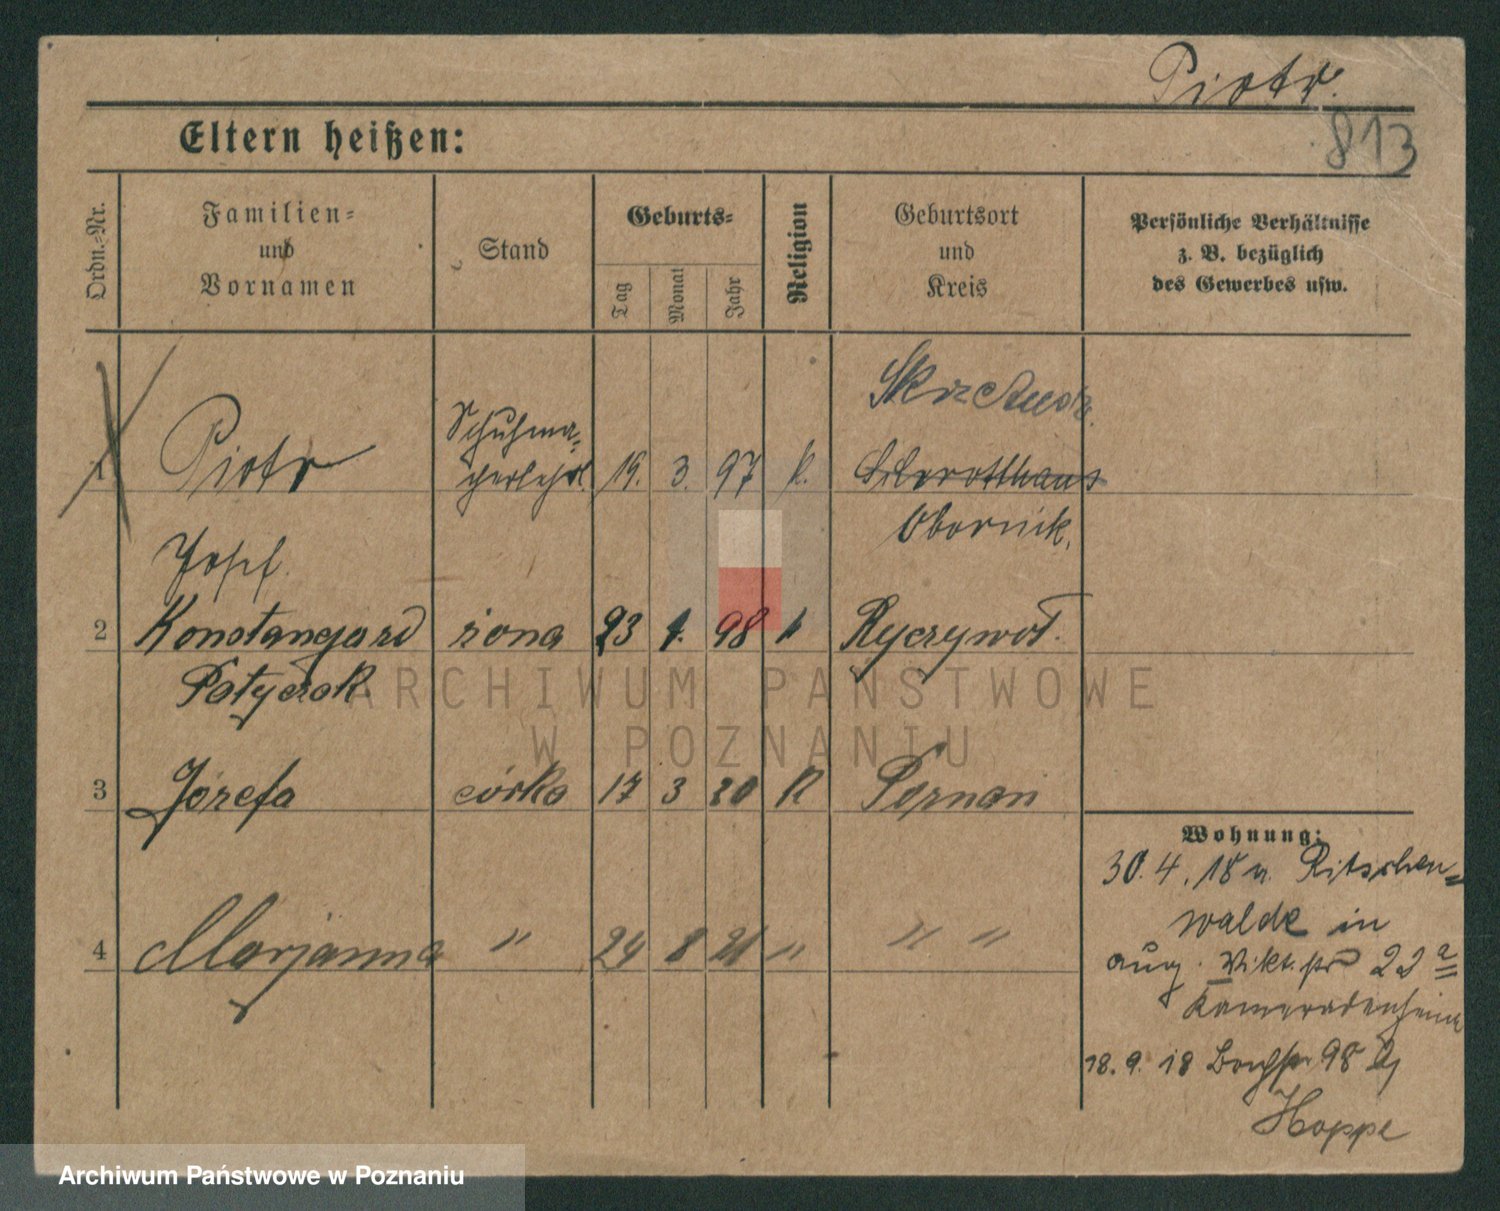 Piotr.
813
Eltern heißen:
Ordn.-Nr.
Familien-
und
Vornamen
Stand
Geburts-
Tag
Monat
Jahr
Religion
Geburtsort
und
Kreis
Persönliche Verhältnisse
z. B. bezüglich
des Gewerbes usw.
1 Piotr Schuhma-
cherlehrl. 19. 3. 97 k.
Obornik.
Josef.
2 Konstancja żona 23 98 k Ryczywół.
Patyczak
3 Józefa córka 17 3 20 k Poznań
4 Marjanna " 24 8 21 " " "
Wohnung:
30.4.18 v. Ritschen-
walde in
aug. Vikt. str 22 a
Kameradenheim
18.9.18 98
Hoppe
ARCHIWUM PAŃSTWOWE
W POZNANIU
Archiwum Państwowe w Poznaniu